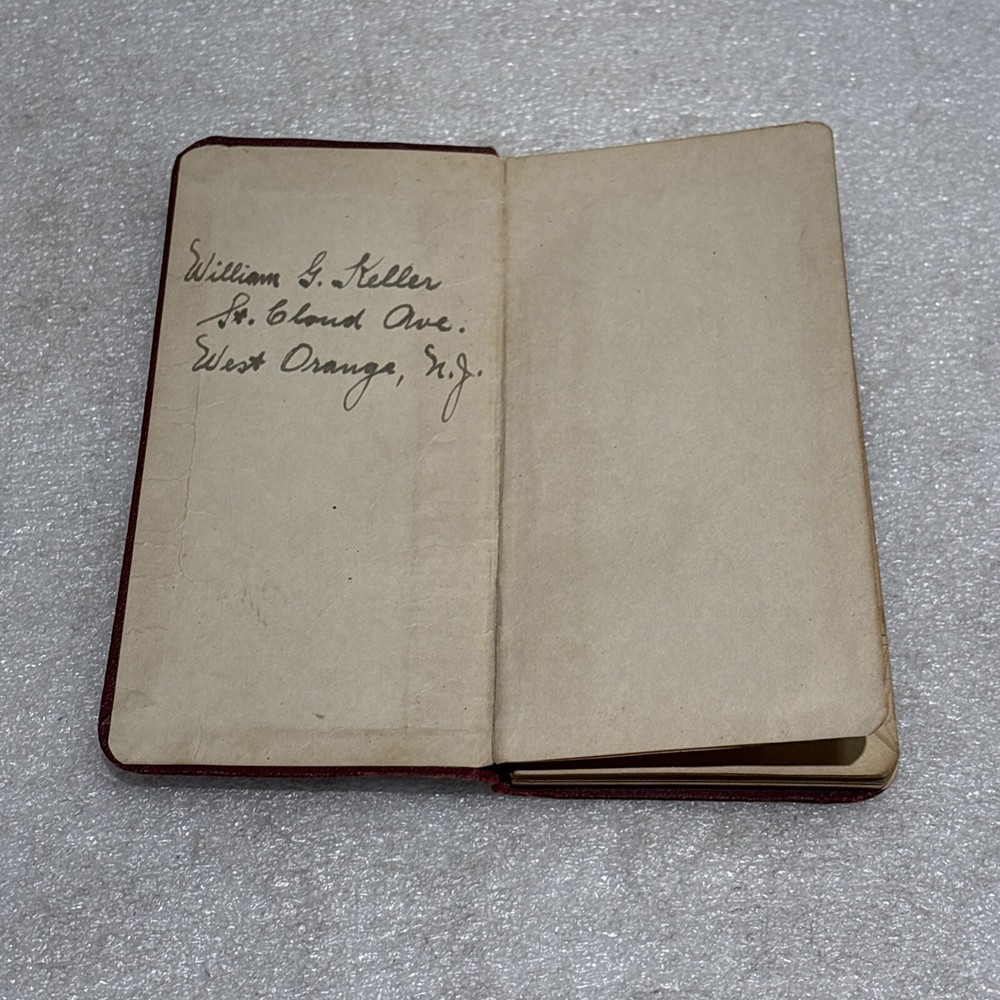 William G. Keller
St. Cloud Ave.
West Orange, N.J.